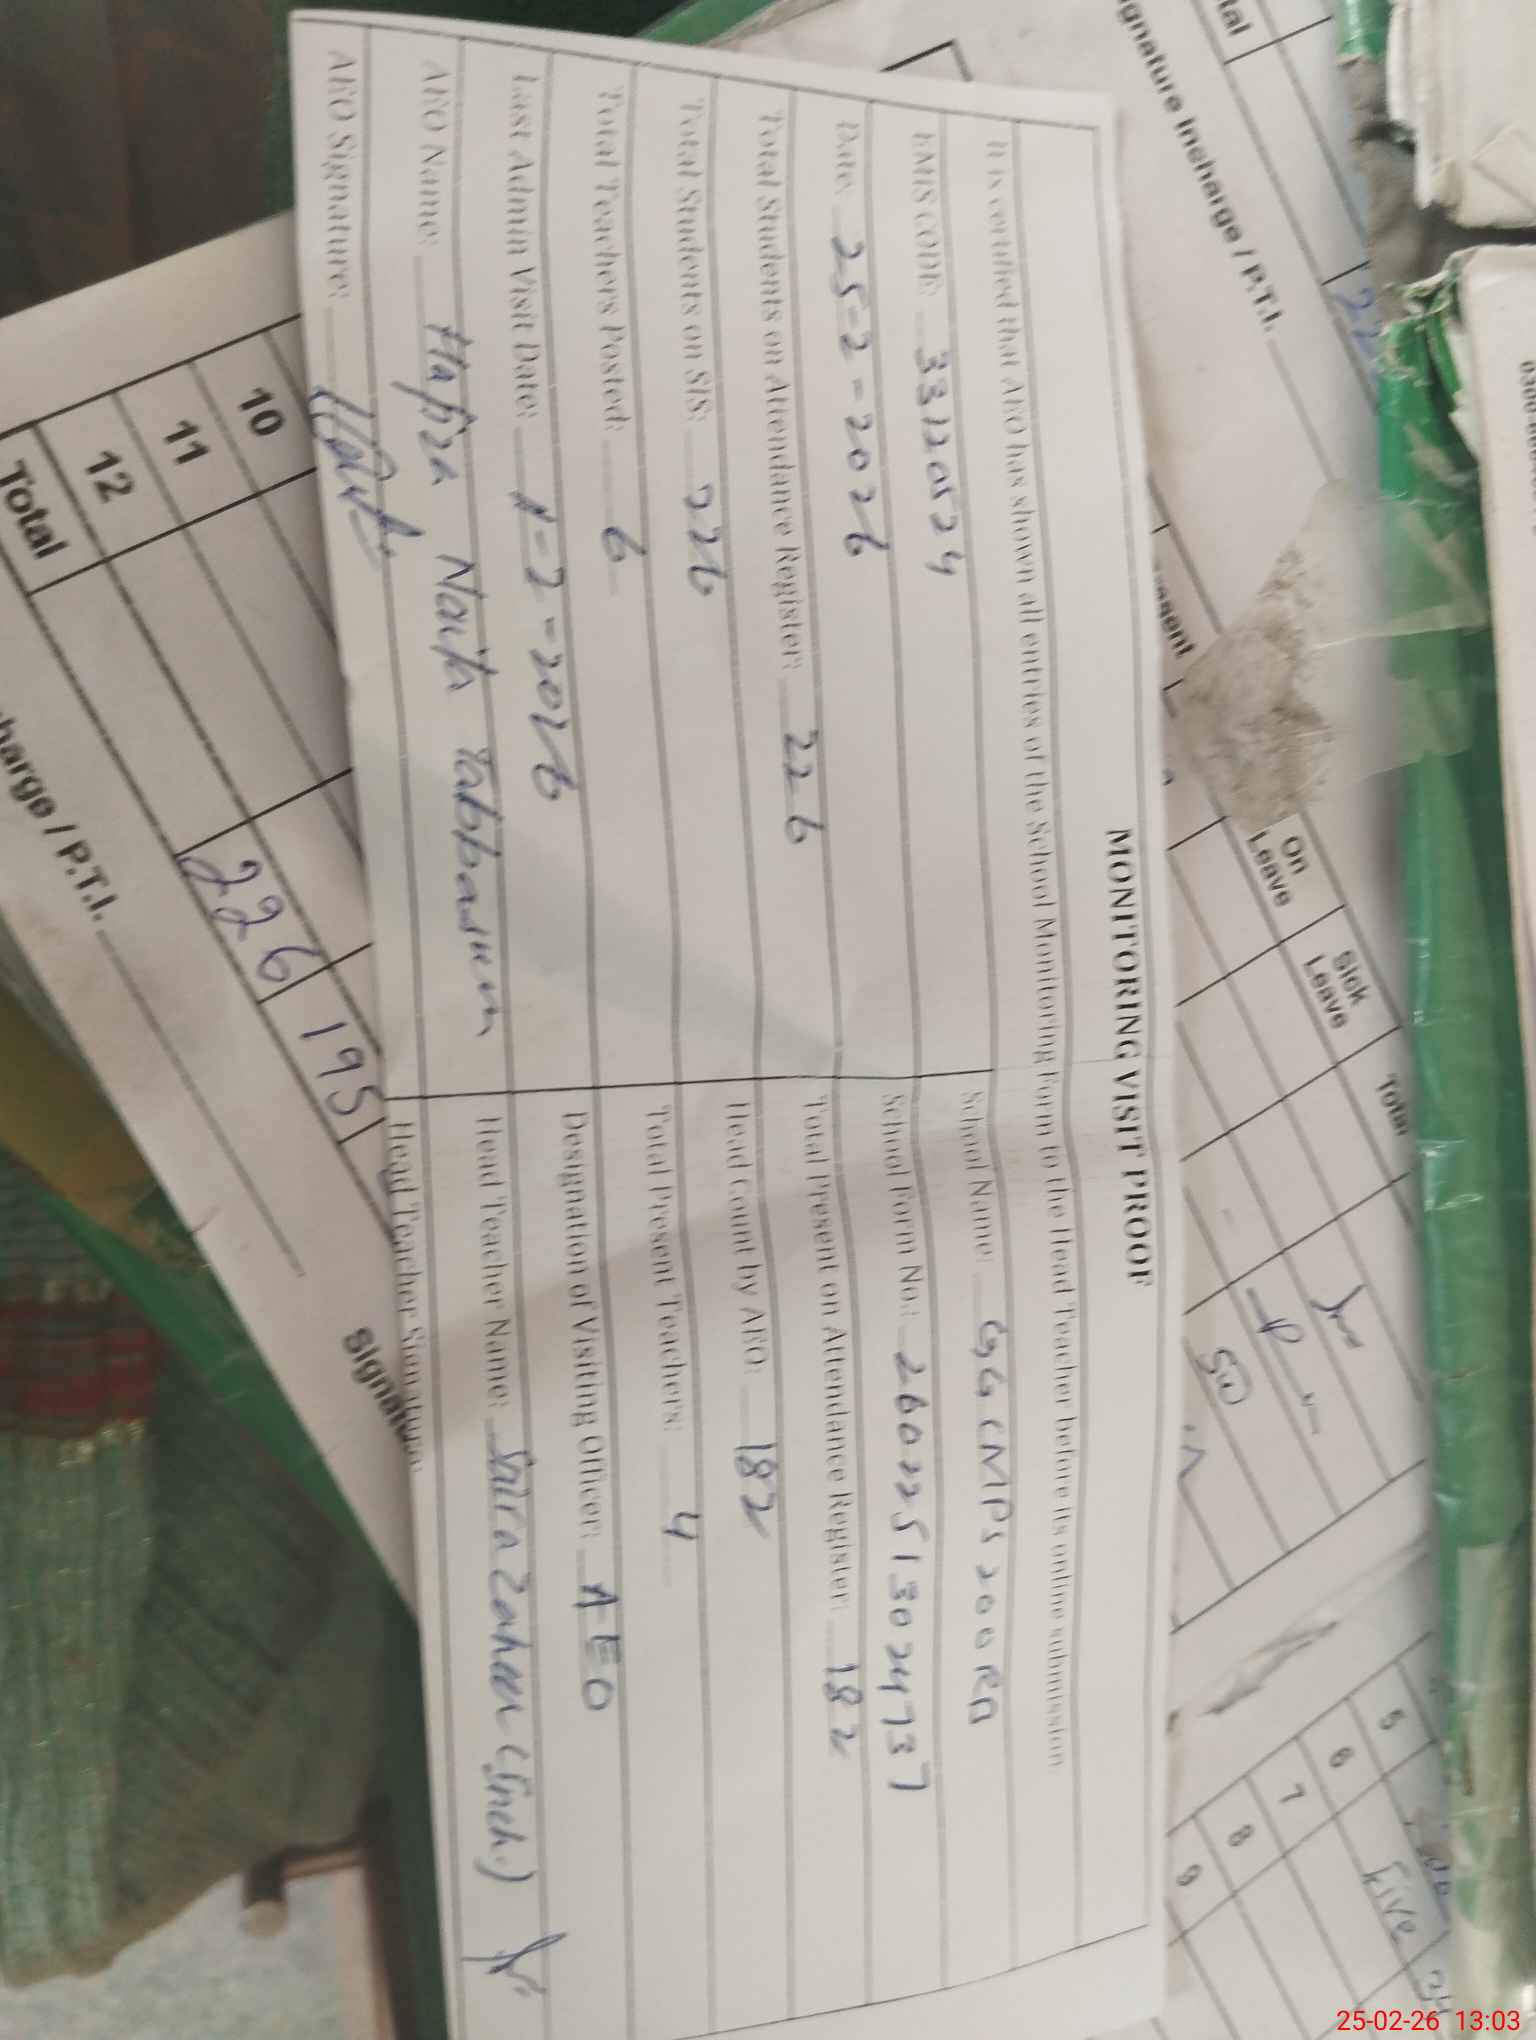 MONITORING VISIT PROOF
It is certified that AEO has shown all entries of the School Monitoring Form to the Head Teacher before its online submission
EMIS CODE: 33120524 School Name: GGCMPS 200 RB
Date: 25-2-2026 School Form No.:
Total Students on Attendance Register: 226 Total Present on Attendance Register: 182
Total Students on SIS: 226 Head Count by AEO: 182
Total Teachers Posted: 6 Total Present Teachers: 4
Last Admin Visit Date: 1-2-2026 Designation of Visiting Officer: AEO
AEO Name: Hafiza Tabbasum Head Teacher Name:
AEO Signature: Head Teacher Signature:
gnature Incharge / P.T.I.
tal
22
On Leave
Sick Leave
Total
10
11
12
Total
226 195
harge / P.T.I.
Signature
5
6
7
8
9
Five
25-02-26 13:03